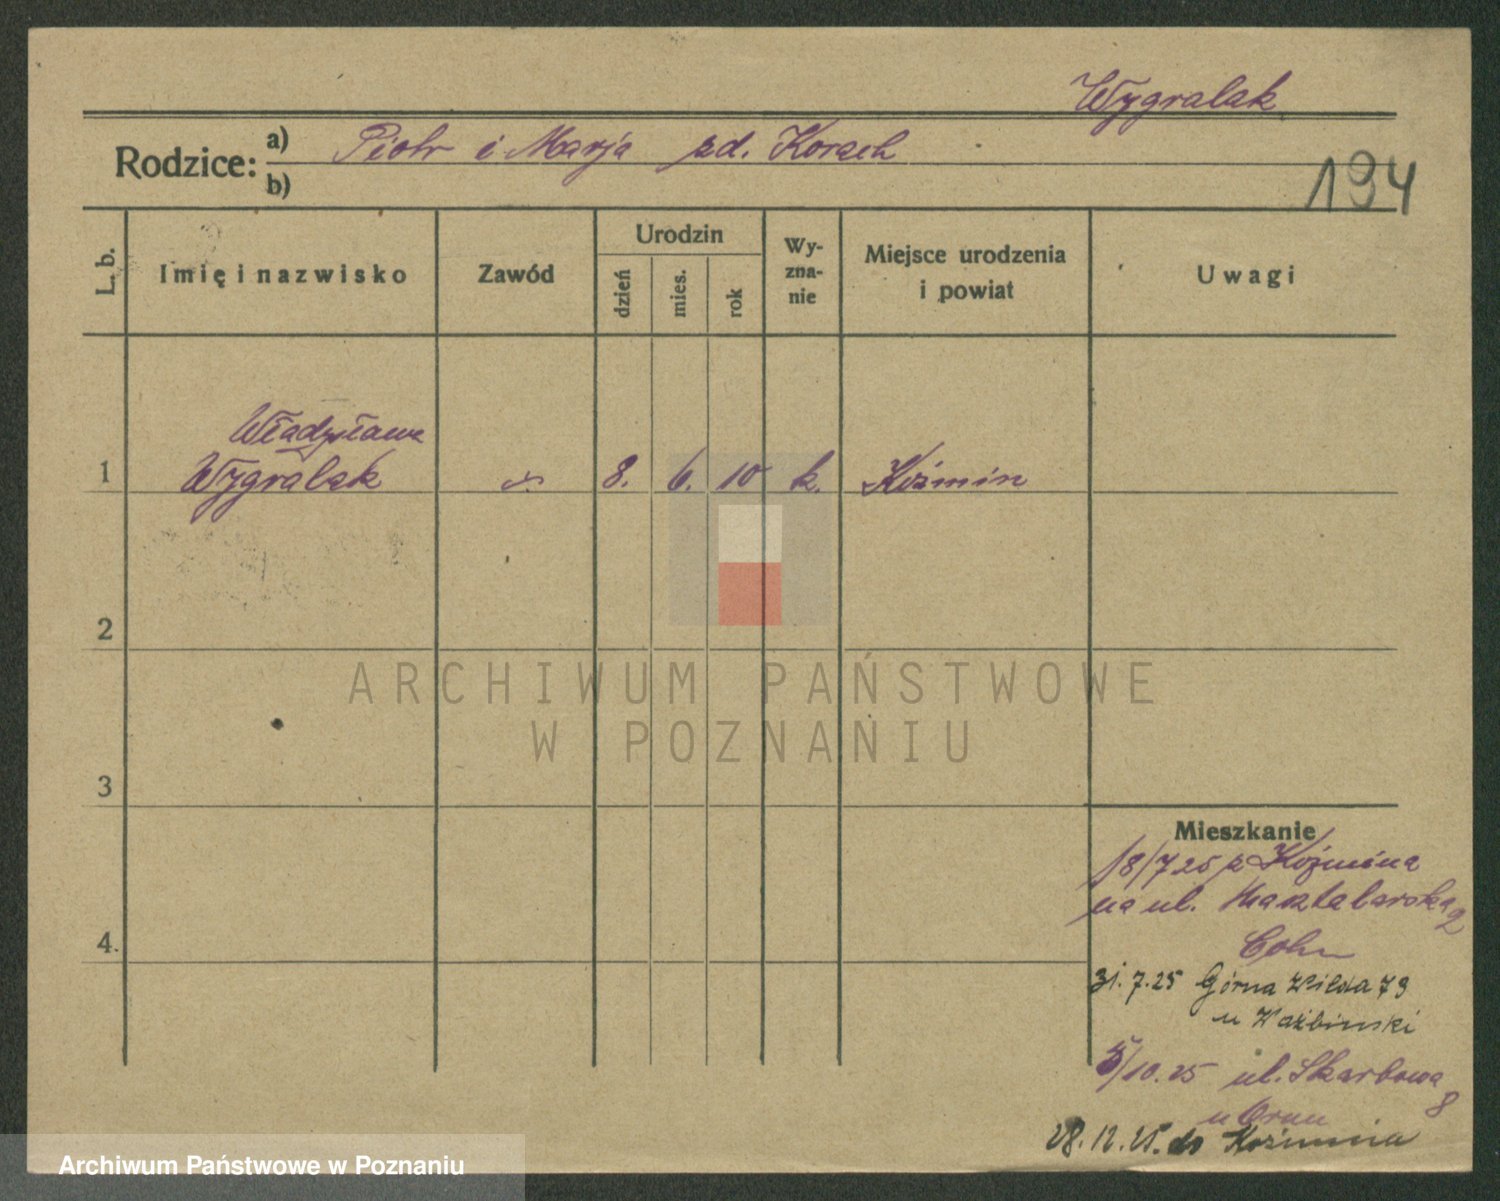 Wygralak
Rodzice: a) Piotr i Marja zd. Korach
b)
194
L. b.
Imię i nazwisko
Zawód
Urodzin
dzień
mies.
rok
Wy-
zna-
nie
Miejsce urodzenia
i powiat
Uwagi
Władysława
1 Wygralak 8. 6. 10 k. Koźmin
2
3
4.
Mieszkanie
18/7 25 z Koźmina
na ul. Masztalarska 2
Cohn
31. 7. 25 Górna Wilda 79
uWażbinski
5/10. 25 ul. Skarbowa 8
u
28. 12. 25. do Koźmina
ARCHIWUM PAŃSTWOWE
W POZNANIU
Archiwum Państwowe w Poznaniu